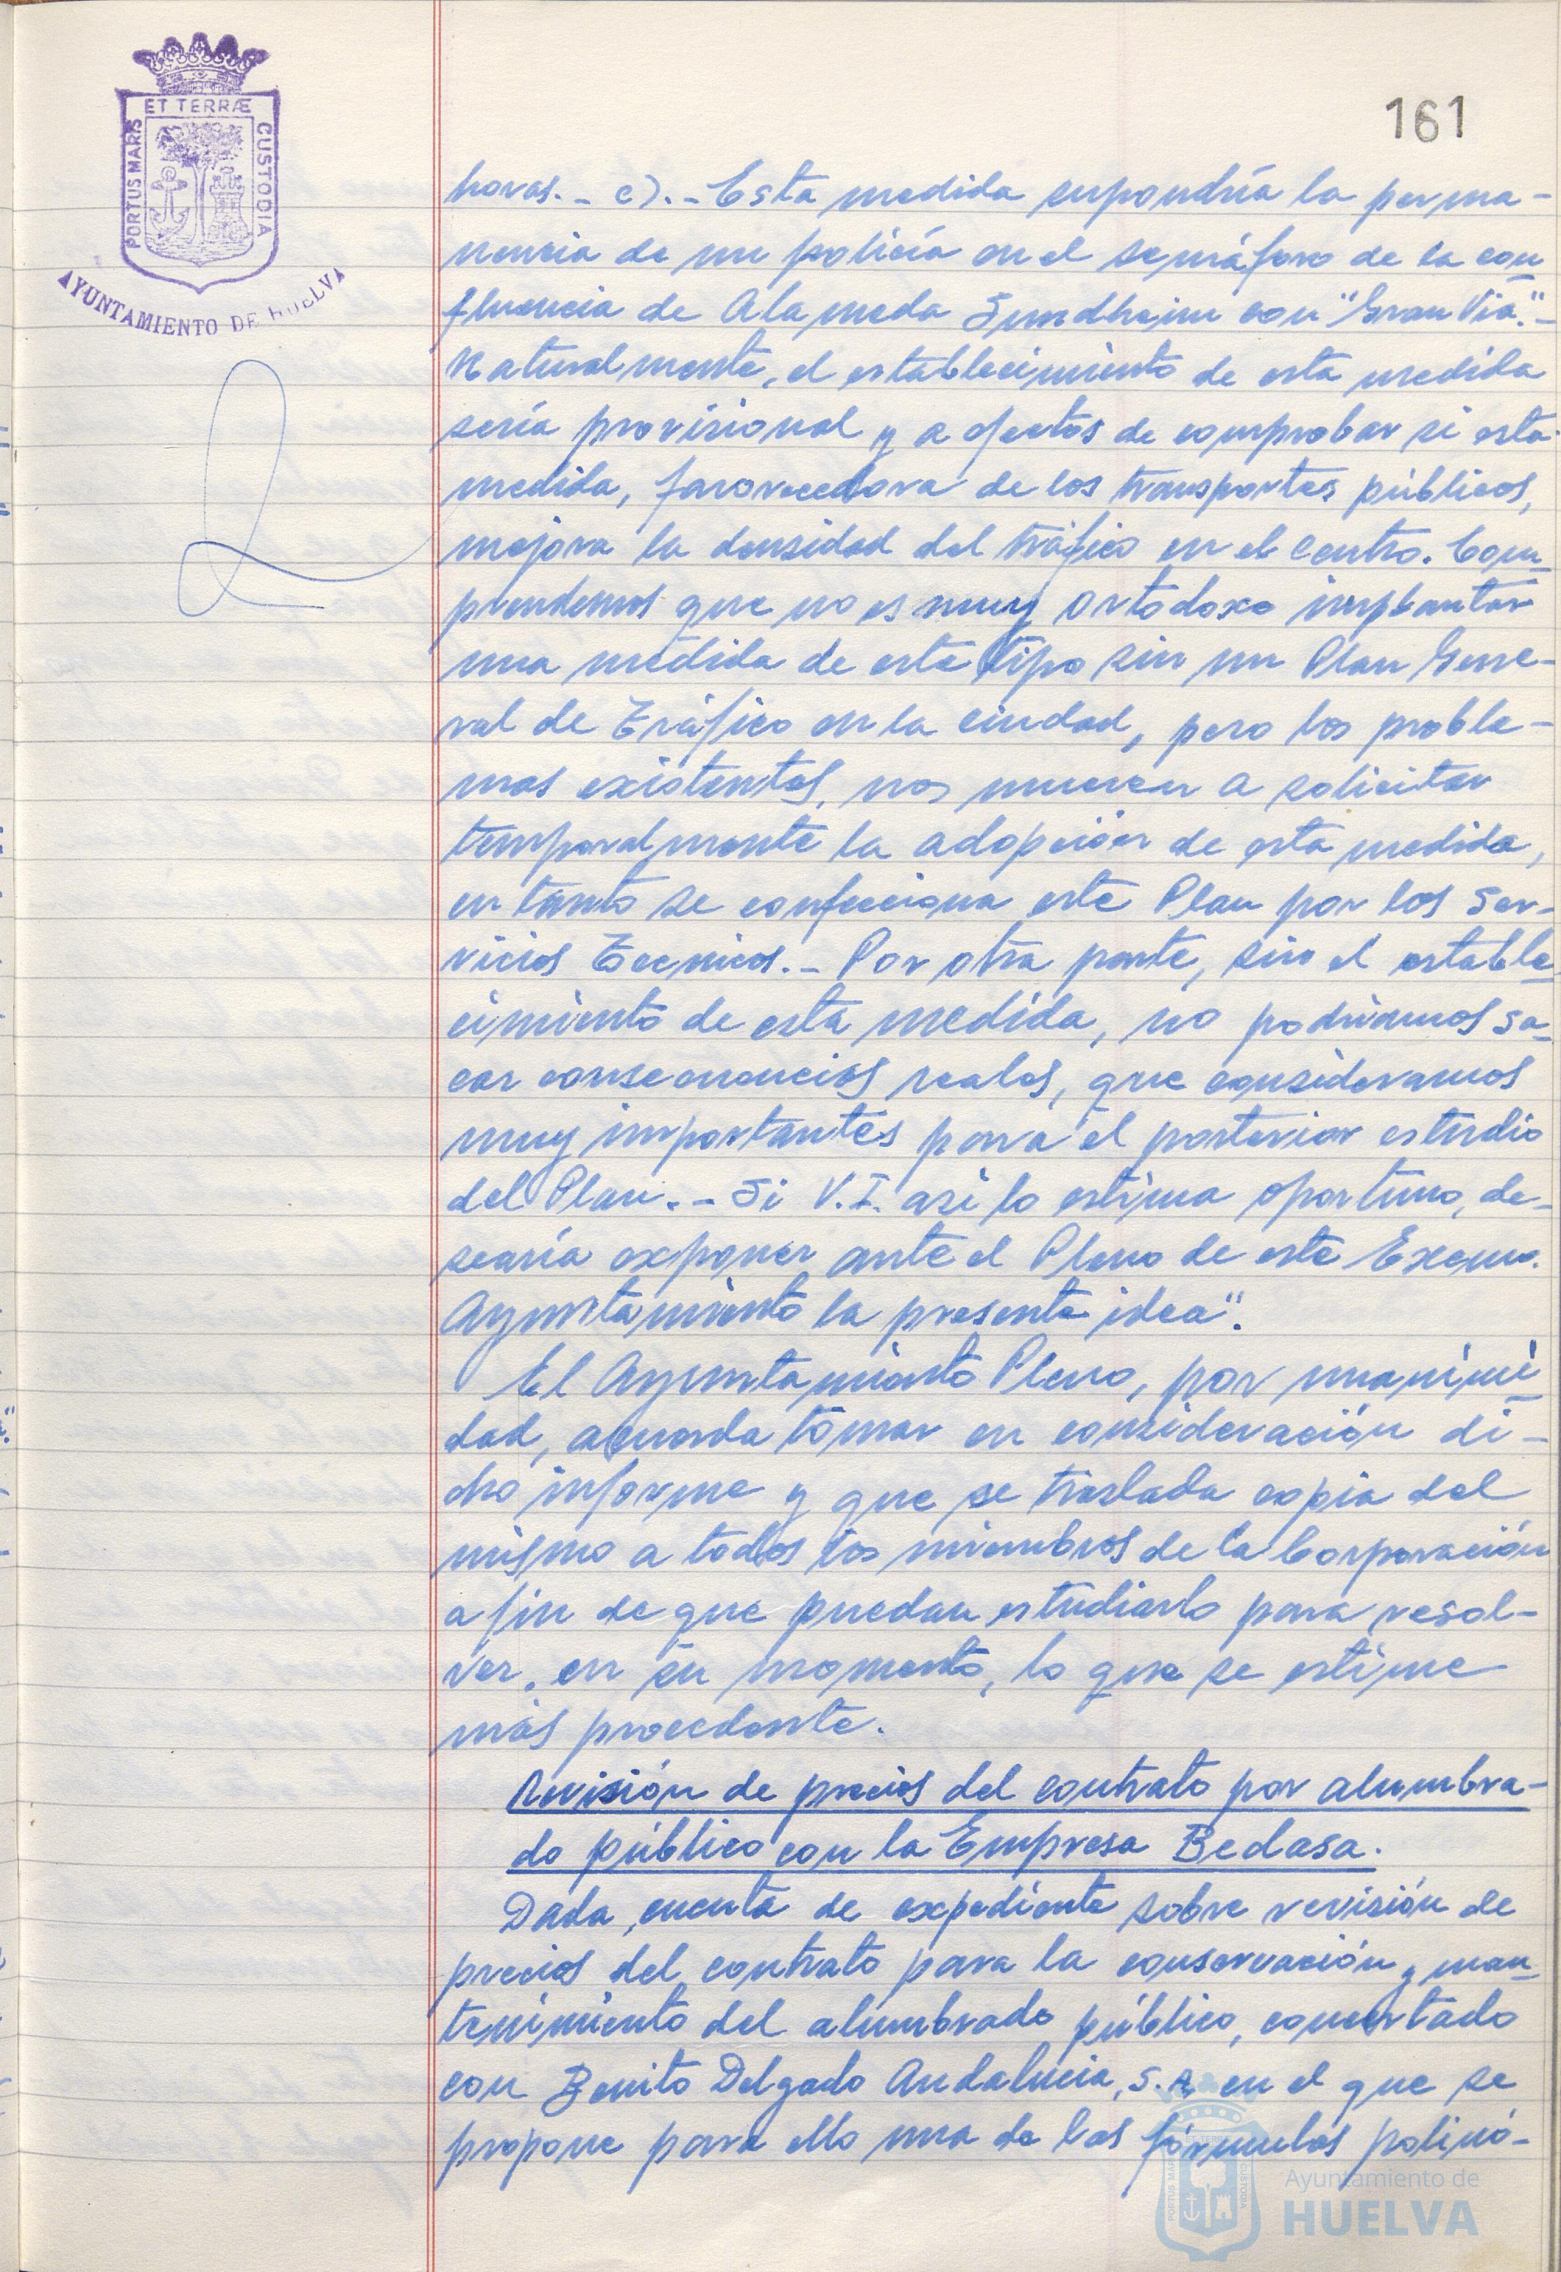 161
ET TERRÆ
PORTUS MARIS
CUSTODIA
AYUNTAMIENTO DE HUELVA
horas._ c)._ Esta medida supondría la perma-
nencia de un policía en el semáforo de la con
fluencia de Alameda Sundheim con "Gran Vía"._
Naturalmente, el establecimiento de esta medida
sería provisional y a efectos de comprobar si esta
medida, favorecedora de los transportes públicos,
mejora la densidad del tráfico en el centro. Com
prendemos que no es muy ortodoxo implantar
una medida de este tipo sin un Plan Gene-
ral de Tráfico en la ciudad, pero los proble-
mas existentes, nos mueven a solicitar
temporalmente la adopción de esta medida,
en tanto se confecciona este Plan por los Ser-
vicios Técnicos._ Por otra parte, sin el estable
cimiento de esta medida, no podríamos sa-
car consecuencias reales, que consideramos
muy importantes para el posterior estudio
del Plan._ Si V.I. asi lo estima oportuno, de-
searía exponer ante el Pleno de este Excmo.
Ayuntamiento la presente idea".
El Ayuntamiento Pleno, por unanimi
dad, acuerda tomar en consideración di-
cho informe y que se traslada copia del
mismo a todos los miembros de la Corporación
a fin de que puedan estudiarlo para resol-
ver, en su momento, lo que se estime
más procedente.
Revisión de precios del contrato por alumbra-
do público con la Empresa Bedasa.
Dada cuenta de expediente sobre revisión de
precios del contrato para la conservación y man
tenimiento del alumbrado público, concertado
con Benito Delgado Andalucia, S.A. en el que se
propone para ello una de las fórmulas polinó-
Ayuntamiento de
HUELVA